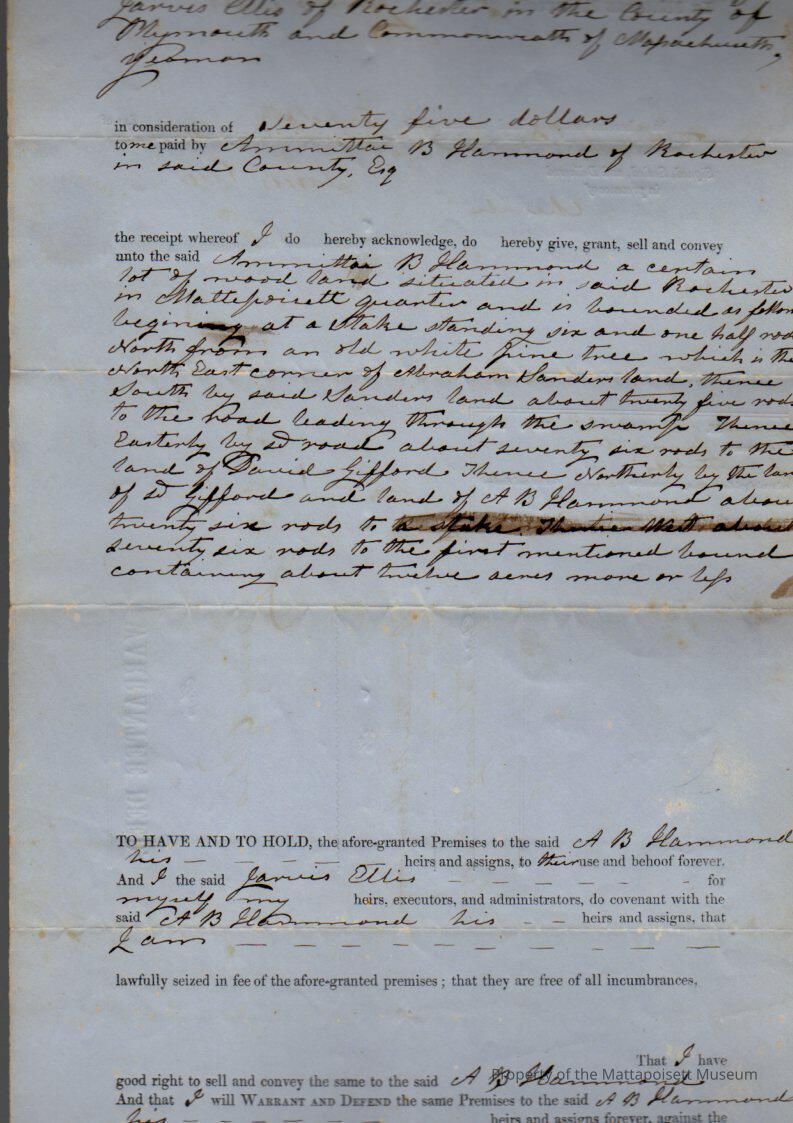 Jarvis Ellis of Rochester in the County of
Plymouth and Commonwealth of Massachusetts,
yeoman
in consideration of seventy five dollars
to me paid by Ammittai B Hammond of Rochester
in said County, Esq
the receipt whereof I do hereby acknowledge, do hereby give, grant, sell and convey
unto the said Ammittai B Hammond a certain
lot of wood land situated in said Rochester
in Mattepoisett quarter and is bounded as follow
begining at a stake standing six and one half rod
North from an old white pine tree which is the
North East corner of Abraham Sanders land, thence
South by said Sanders land about twenty five rods
to the road leading through the swamp Thence
Easterly by sd road about seventy six rods to the
land of David Gifford Thence Northerly by the lan
of sd Gifford and land of A B Hammond abou
twenty six rods to a stake. Thence West about
seventy six rods to the first mentioned bound
containing about twelve acres more or less
TO HAVE AND TO HOLD, the afore-granted Premises to the said A B Hammond
his — — — — — heirs and assigns, to their use and behoof forever.
And I the said Jarvis Ellis — — — — — - for
myself my heirs, executors, and administrators, do covenant with the
said A B Hammond his - - heirs and assigns, that
I am — — — — — — — — — — —
lawfully seized in fee of the afore-granted premises ; that they are free of all incumbrances,
That I have
good right to sell and convey the same to the said A B Hammond
Property of the Mattapoisett Museum
And that I will WARRANT AND DEFEND the same Premises to the said A B Hammond
his — — — — — heirs and assigns forever, against the